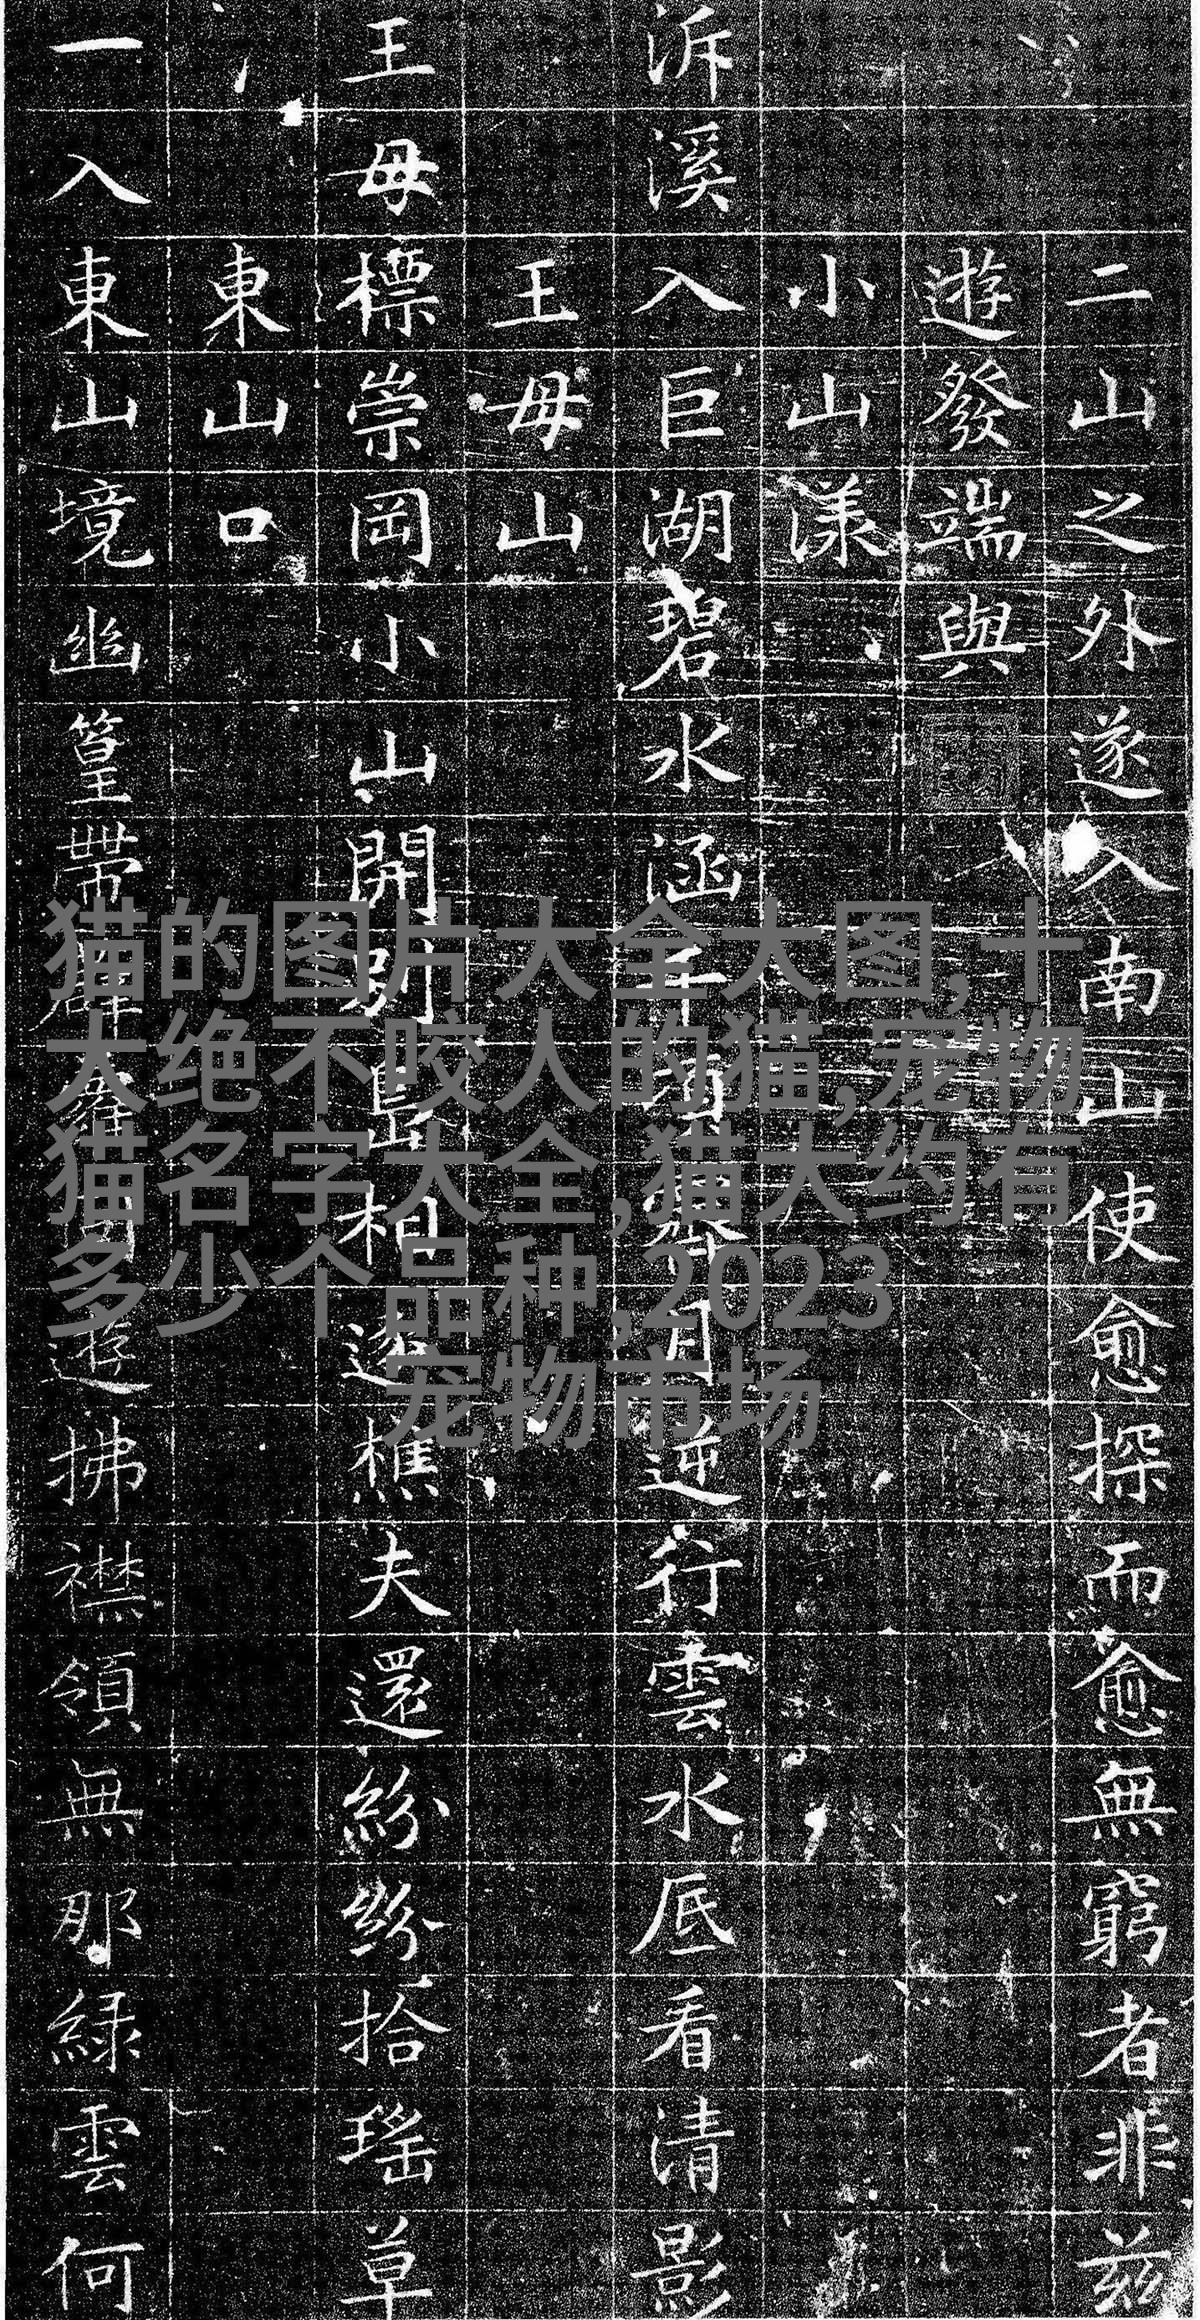 二山之外遂入南山使愈探而愈無窮者非茲
遊發端與
小山漾
泝溪入巨湖碧水涵千頃月逆行雲水底看清影
王母山
王母標崇岡小山開別島相逢樵夫還紛紛拾瑤草
東山口
一入東山境幽篁帶遊拂襟領無那綠雲何
猫的图片大全大图,十
大绝不咬人的猫,宠物
猫名字大全,猫大约有
多少个品种,2023
宠物市场